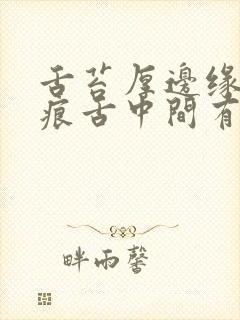 舌苔厚邊缘
痕舌中間有
畔雨馨